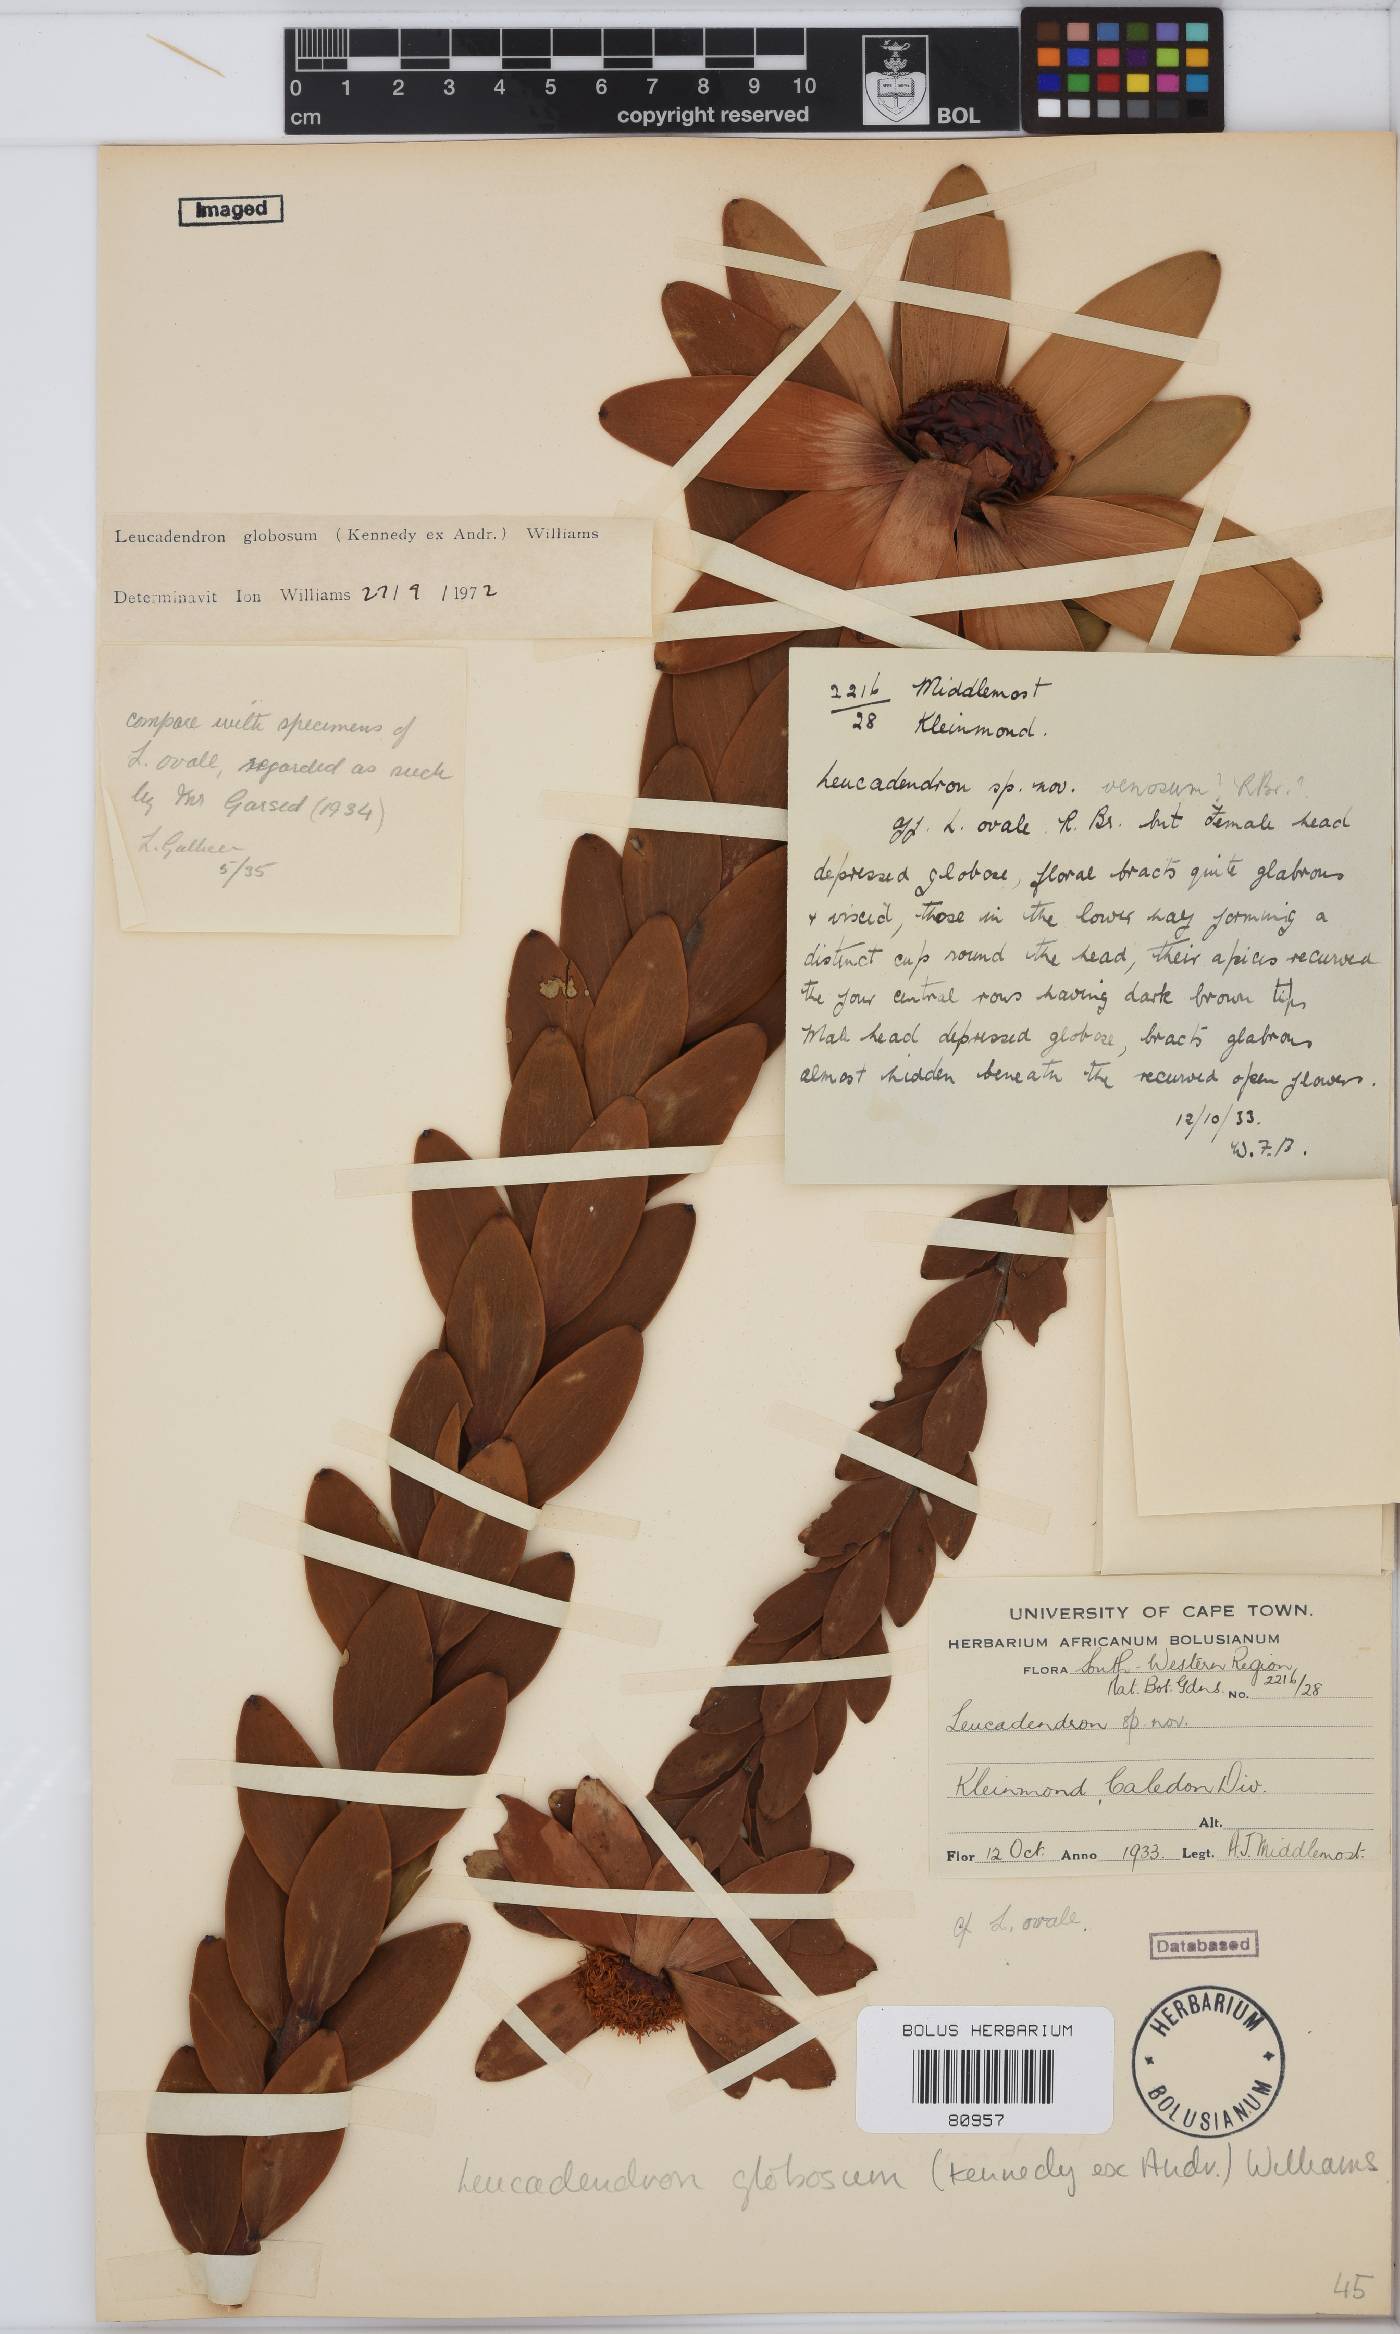 0 1 2 3 4 5 6 7 8 9 10
cm
copyright reserved
BOL
Imaged
Leucadendron globosum (Kennedy ex Andr.) Williams
Determinavit Ion Williams 27/9/1972
compare with specimens of
L. ovale, regarded as such
by Mr Garsed (1934)
5/35
2216 Middlemost
28 Kleinmond.
Leucadendron sp. nov. venosum? R.Br.?
Aff. L. ovale R. Br. but Female head
depressed globose, floral bracts quite glabrous
& viscid, those in the lower half forming a
distinct cup round the head, their apices recurved
the four central rows having dark brown tips
Male head depressed globose, bracts glabrous
almost hidden beneath the recurved open flowers.
12/10/33.
W.F.B.
UNIVERSITY OF CAPE TOWN.
HERBARIUM AFRICANUM BOLUSIANUM
FLORA South-Western Region
Nat. Bot. Gdns. No. 2216/28
Leucadendron sp. nov.
Kleinmond, Caledon Div.
Alt.
Flor 12 Oct. Anno 1933. Legt. A.J. Middlemost.
cf L. ovale.
Databased
HERBARIUM
BOLUSIANUM
BOLUS HERBARIUM
80957
Leucadendron globosum (Kennedy ex Andr.) Williams
45